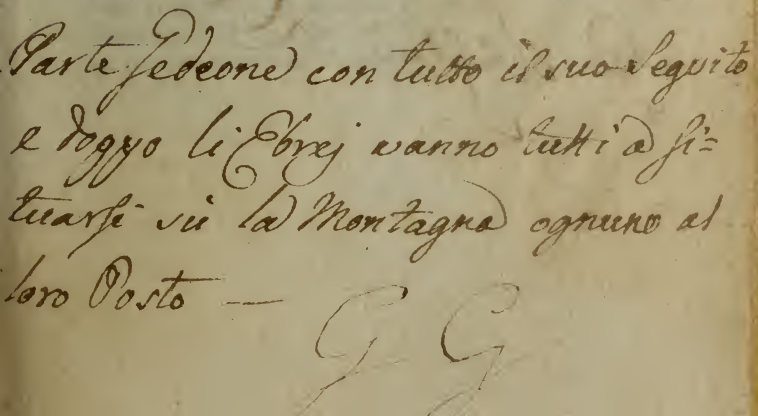 Parte Gedeone con tutto il suo Seguito
e doppo li Ebrej vanno tutti a si=
tuarsi sù la Montagna ognuno al
loro Posto —
G G